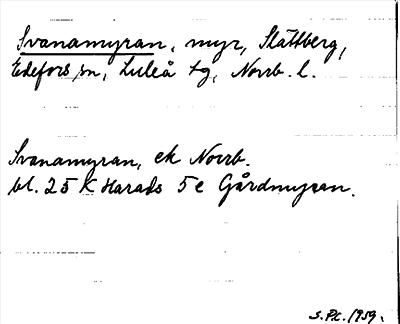 Svanamyran, myr, Slättberg,
Edefors sn, Luleå tg, Norrb. l.
Svanamyran, ek Norrb.
bl. 25 K Harads 5 e Gårdmyran.
S.P.C. 1959.